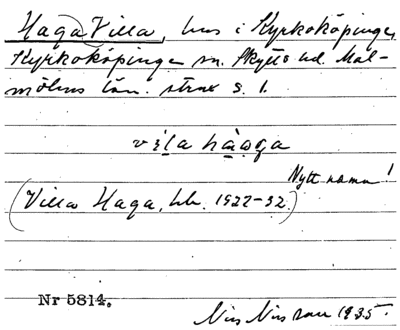 Haga Villa, hus i Kyrkoköpinge,
Kyrkoköpinge sn. Skytts hd. Mal-
möhus län. strax S. 1.
vi̱la hå̱a̱ga
Nytt namn!
(Villa Haga, hb. 1922-32.)
Nr 5814.
Nils Nilsson 1935.